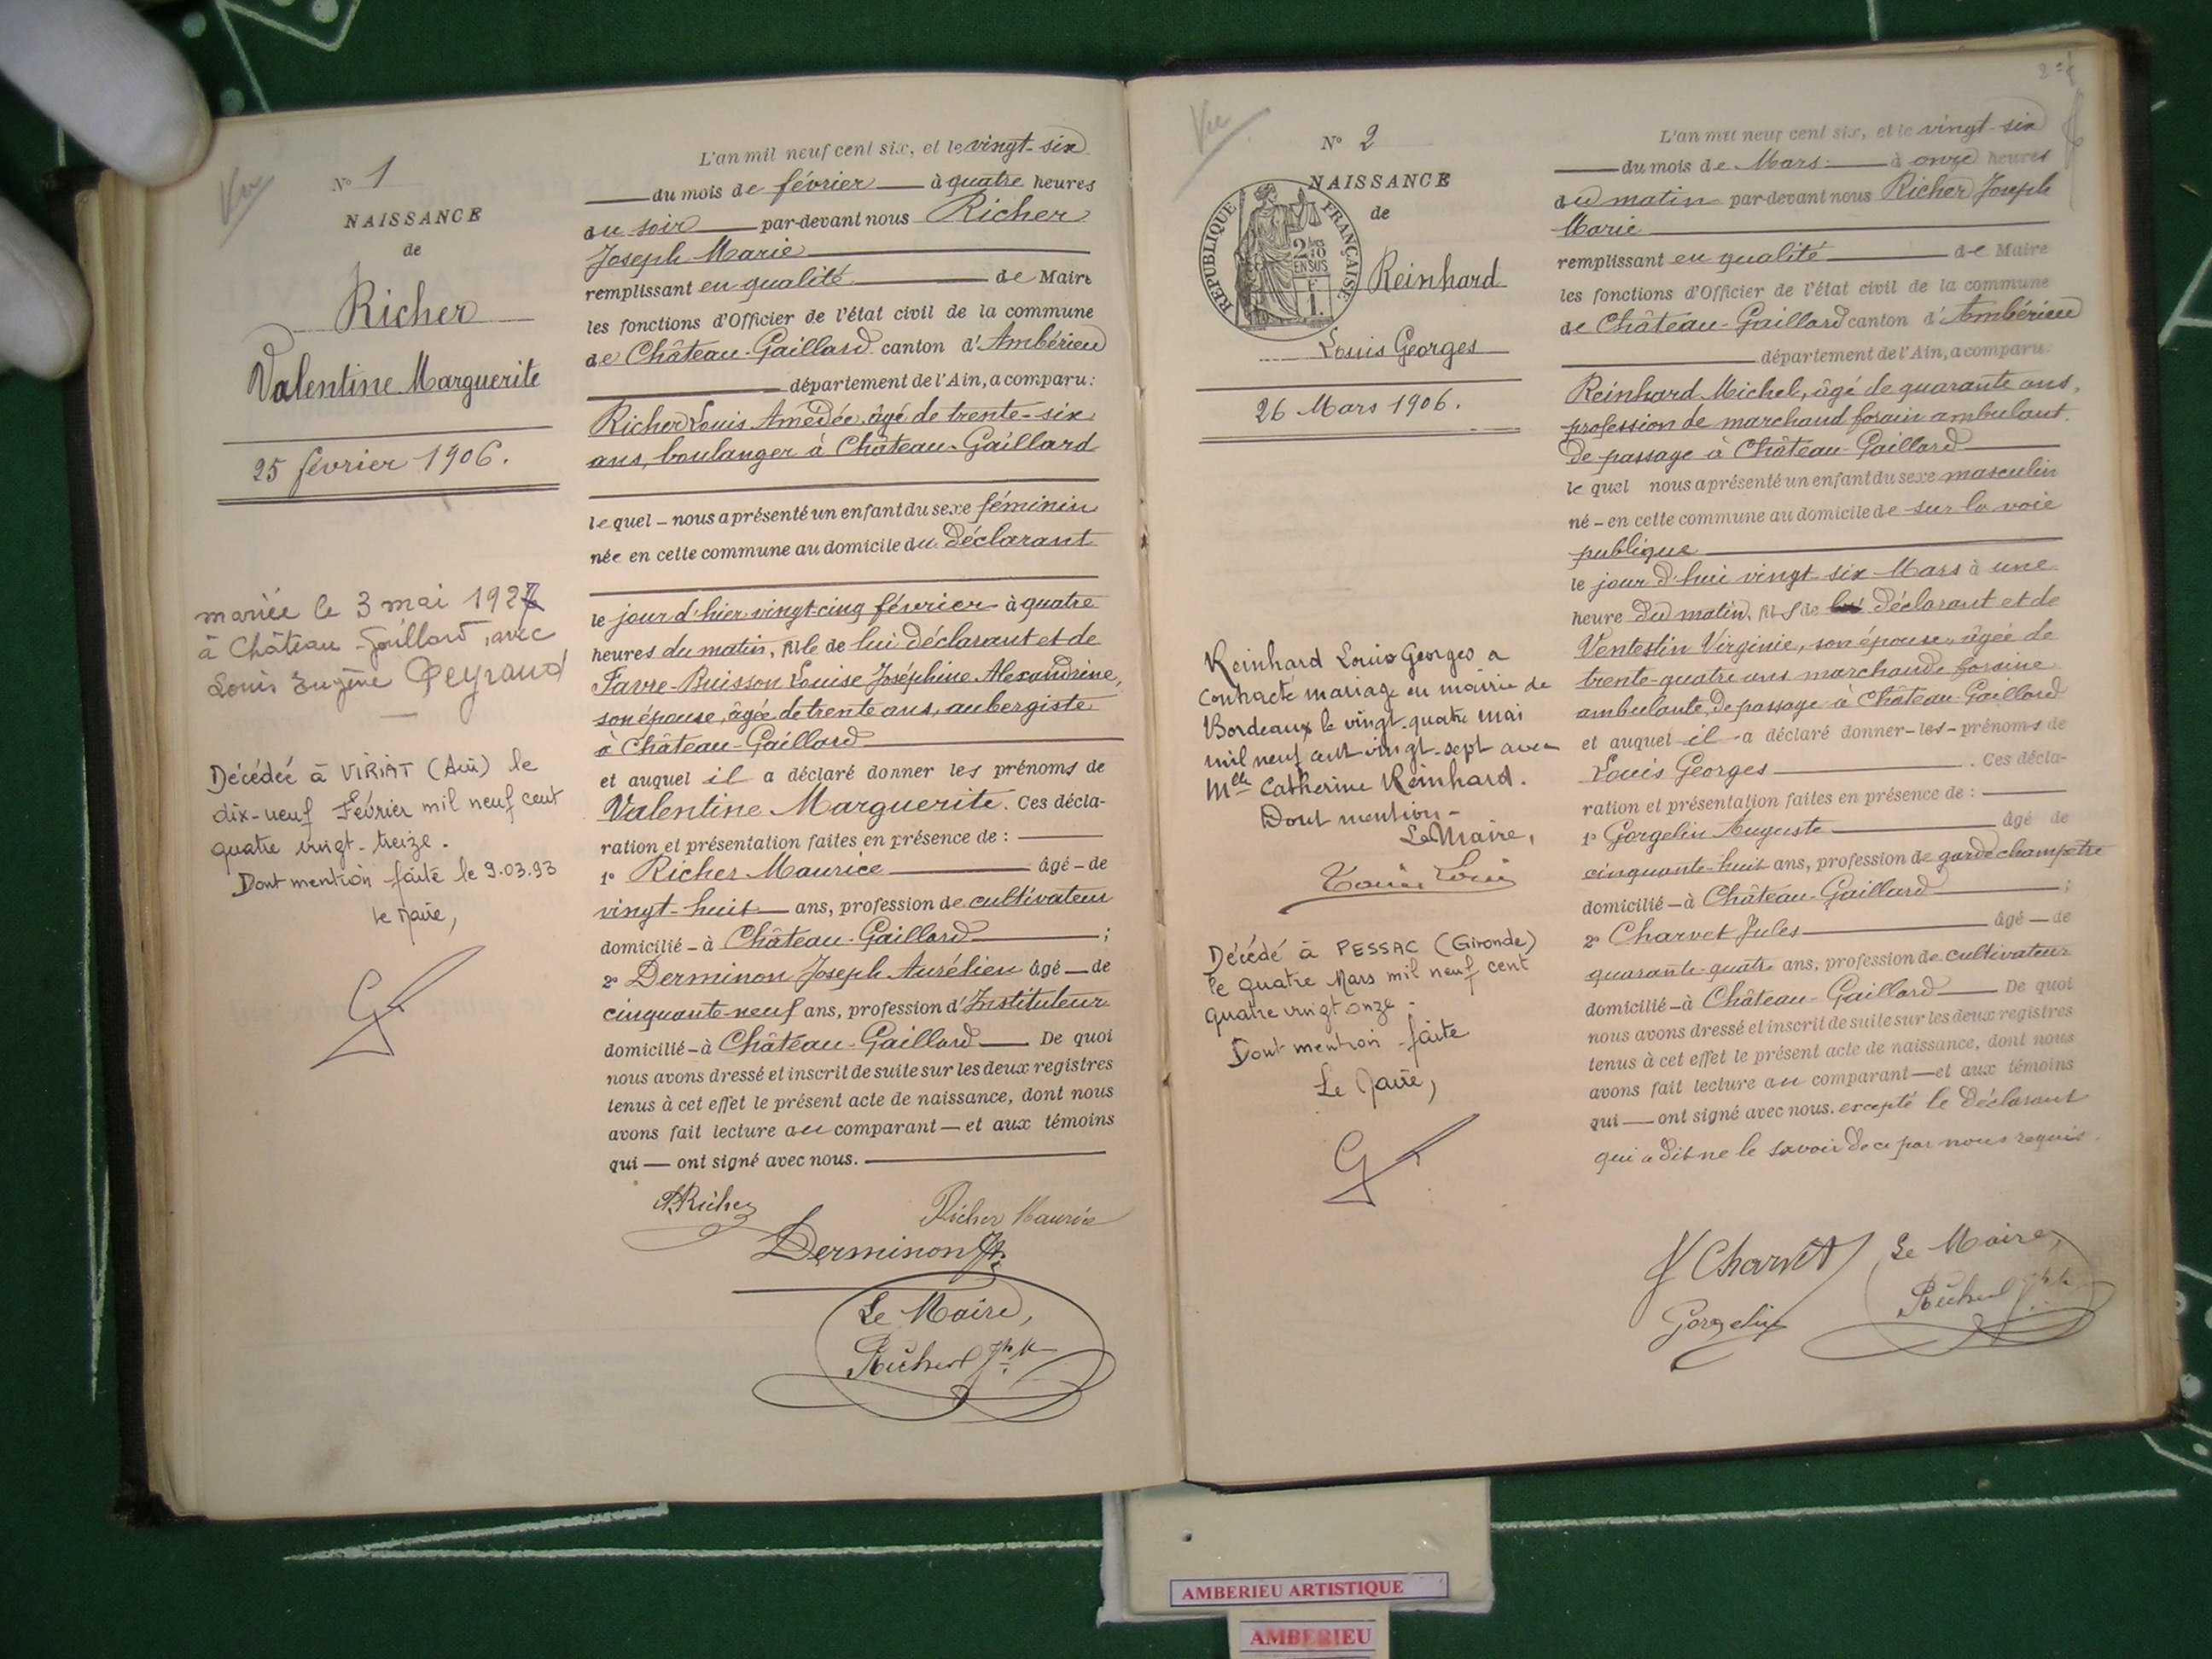 Vu
N° 1
NAISSANCE
de
Richer
Valentine Marguerite
25 février 1906.
mariée le 3 mai 1927
à Château-Gaillard, avec
Louis Eugène Peyraud
Décédée à VIRIAT (Ain) le
dix-neuf Février mil neuf cent
quatre vingt-treize.
Dont mention faite le 9.03.93
le Maire,
L'an mil neuf cent six, et le vingt-six
du mois de février à quatre heures
du soir par-devant nous Richer
Joseph Marie
remplissant en qualité de Maire
les fonctions d'Officier de l'état civil de la commune
de Château-Gaillard canton d'Ambérieu
département de l'Ain, a comparu:
Richer Louis Amédée, âgé de trente-six
ans, boulanger à Château-Gaillard
le quel – nous a présenté un enfant du sexe féminin
née en cette commune au domicile du déclarant
le jour d'hier vingt-cinq février à quatre
heures du matin, fille de lui déclarant et de
Favre-Buisson Louise Joséphine Alexandrine,
son épouse, âgée de trente ans, aubergiste
à Château-Gaillard
et auquel il a déclaré donner les prénoms de
Valentine Marguerite. Ces décla-
ration et présentation faites en présence de :
1° Richer Maurice âgé – de
vingt-huit ans, profession de cultivateur
domicilié – à Château-Gaillard ;
2° Derminon Joseph Aurélien âgé — de
cinquante-neuf ans, profession d'Instituteur
domicilié – à Château-Gaillard De quoi
nous avons dressé et inscrit de suite sur les deux registres
tenus à cet effet le présent acte de naissance, dont nous
avons fait lecture au comparant — et aux témoins
qui — ont signé avec nous.
Richer
Richer Maurice
Derminon
Le Maire,
Richer
Vu
N° 2
NAISSANCE
de
REPUBLIQUE FRANÇAISE
2/10
EN SUS
Reinhard
Louis Georges
26 Mars 1906.
Reinhard Louis Georges a
contracté mariage en mairie de
Bordeaux le vingt-quatre mai
mil neuf cent vingt-sept avec
Melle Catherine Reinhard.
Dont mention –
Le Maire,
Décédé à PESSAC (Gironde)
le quatre Mars mil neuf cent
quatre vingt onze.
Dont mention faite
Le Maire,
L'an mil neuf cent six, et le vingt-six
du mois de Mars à onze heures
du matin par-devant nous Richer Joseph
Marie
remplissant en qualité de Maire
les fonctions d'Officier de l'état civil de la commune
de Château-Gaillard canton d'Ambérieu
département de l'Ain, a comparu
Reinhard Michel, âgé de quarante ans,
profession de marchand forain ambulant.
de passage à Château-Gaillard
le quel nous a présenté un enfant du sexe masculin
né – en cette commune au domicile de sur la voie
publique
le jour d'hui vingt six Mars à une
heure du matin, fils de lui déclarant et de
Ventestin Virginie, son épouse, âgée de
trente-quatre ans marchande foraine
ambulante, de passage à Château-Gaillard
et auquel il – a déclaré donner – les – prénoms de
Louis Georges . Ces décla-
ration et présentation faites en présence de :
1° Gorgelin Auguste âgé de
cinquante-huit ans, profession de garde champêtre
domicilié – à Château-Gaillard ;
2° Charvet Jules âgé — de
quarante-quatre ans, profession de cultivateur
domicilié – à Château-Gaillard De quoi
nous avons dressé et inscrit de suite sur les deux registres
tenus à cet effet le présent acte de naissance, dont nous
avons fait lecture au comparant — et aux témoins
qui — ont signé avec nous. excepté le déclarant
qui a dit ne le savoir de ce par nous requis.
J Charvet
Le Maire,
Gorgelin
Richer
AMBERIEU ARTISTIQUE
AMBERIEU